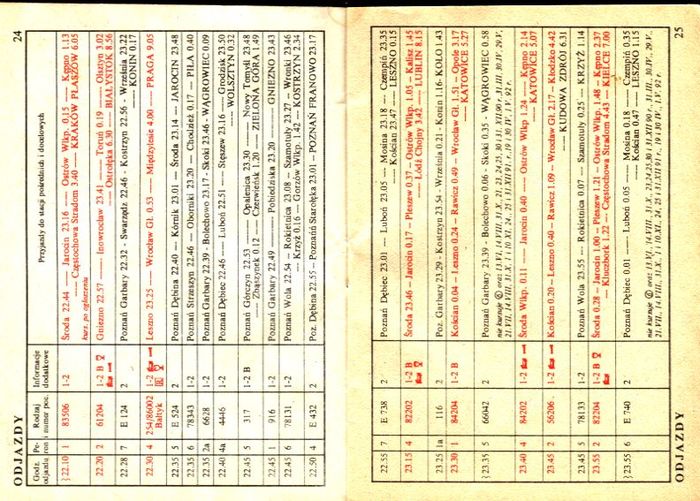 24
ODJAZDY
Godz. odjazdu Pe-ron Rodzaj i numer poc. Informacje dodatkowe Przyjazdy do stacji pośrednich i docelowych
22.10 1 83506 1-2 Środa 22.44 — Jarocin 23.16 — Ostrów Wlkp. 0.15 — Kępno 1.13
— Częstochowa Stradom 3.40 — KRAKÓW PŁASZÓW 6.05
kurs. po ogłoszeniu
22.20 2 61204 1-2 B Gniezno 22.57 — Inowrocław 23.41 — Toruń 0.19 — Olsztyn 3.02
— Ostrołęka 6.30 — BIAŁYSTOK 8.56
22.28 7 E 124 2 Poznań Garbary 22.32 - Swarzędz 22.46 - Kostrzyn 22.56 - Września 23.22
— KONIN 0.17
22.30 4 254/86002 Bałtyk 1-2 Leszno 23.25 — Wrocław Gł. 0.53 — Międzylesie 4.00 — PRAGA 9.05
22.35 5 E 524 2 Poznań Dębina 22.40 — Kórnik 23.01 — Środa 23.14 — JAROCIN 23.48
22.35 6 78343 1-2 Poznań Strzeszyn 22.46 — Oborniki 23.20 — Chodzież 0.17 — PIŁA 0.40
22.35 2a 6628 1-2 Poznań Garbary 22.39 - Bolechowo 23.17 - Skoki 23.46 - WĄGROWIEC 0.09
22.40 4a 4446 1-2 Poznań Dębiec 22.46 — Luboń 22.51 — Stęszew 23.16 — Grodzisk 23.50
— WOLSZTYN 0.32
22.45 5 317 1-2 B Poznań Górczyn 22.53 — Opalenica 23.30 — Nowy Tomyśl 23.48
— Zbąszynek 0.12 — Czerwieńsk 1.20 — ZIELONA GÓRA 1.49
22.45 1 916 2 Poznań Garbary 22.49 — Pobiedziska 23.20 — GNIEZNO 23.43
22.45 6 78131 1-2 Poznań Wola 22.54 — Rokietnica 23.08 — Szamotuły 23.27 — Wronki 23.46
— Krzyż 0.16 — Gorzów Wlkp. 1.42 — KOSTRZYN 2.34
22.50 4 E 432 2 Poz. Dębina 22.55 – Poznań Starołęka 23.01 – POZNAŃ FRANOWO 23.17
22.55 7 E 738 2 Poznań Dębiec 23.01 — Luboń 23.05 — Mosina 23.18 — Czempiń 23.35
— Kościan 23.47 — LESZNO 0.15
23.15 4 82202 1-2 B Środa 23.46 - Jarocin 0.17 – Pleszew 0.37 – Ostrów Wlkp. 1.05 – Kalisz 1.45
— Łódź Chojny 3.42 — LUBLIN 8.15
23.25 1a 116 2 Poz. Garbary 23.29 - Kostrzyn 23.54 - Września 0.21 - Konin 1.16 - KOŁO 1.43
23.30 1 84204 1-2 B Kościan 0.04 — Leszno 0.24 — Rawicz 0.49 — Wrocław Gł. 1.51 — Opole 3.17
— KATOWICE 5.27
23.35 5 66042 2 Poznań Garbary 23.39 - Bolechowo 0.06 - Skoki 0.35 - WĄGROWIEC 0.58
23.40 4 84202 1-2 Środa Wlkp. 0.11 — Jarocin 0.40 — Ostrów Wlkp. 1.24 — Kępno 2.14
— KATOWICE 5.07
23.45 2 56206 1-2 Kościan 0.20 — Leszno 0.40 — Rawicz 1.09 — Wrocław Gł. 2.17 — Kłodzko 4.42
— KUDOWA ZDRÓJ 6.31
23.45 5 78133 1-2 Poznań Wola 23.55 — Rokietnica 0.07 — Szamotuły 0.25 — KRZYŻ 1.14
23.55 2 82204 1-2 B Środa 0.28 – Jarocin 1.00 – Pleszew 1.21 – Ostrów Wlkp. 1.48 – Kępno 2.37
— Kluczbork 1.22 — Częstochowa Stradom 4.43 — KIELCE 7.00
23.55 6 E 740 2 Poznań Dębiec 0.01 — Luboń 0.05 — Mosina 0.18 — Czempiń 0.35
— Kościan 0.47 — LESZNO 1.15
ODJAZDY
25